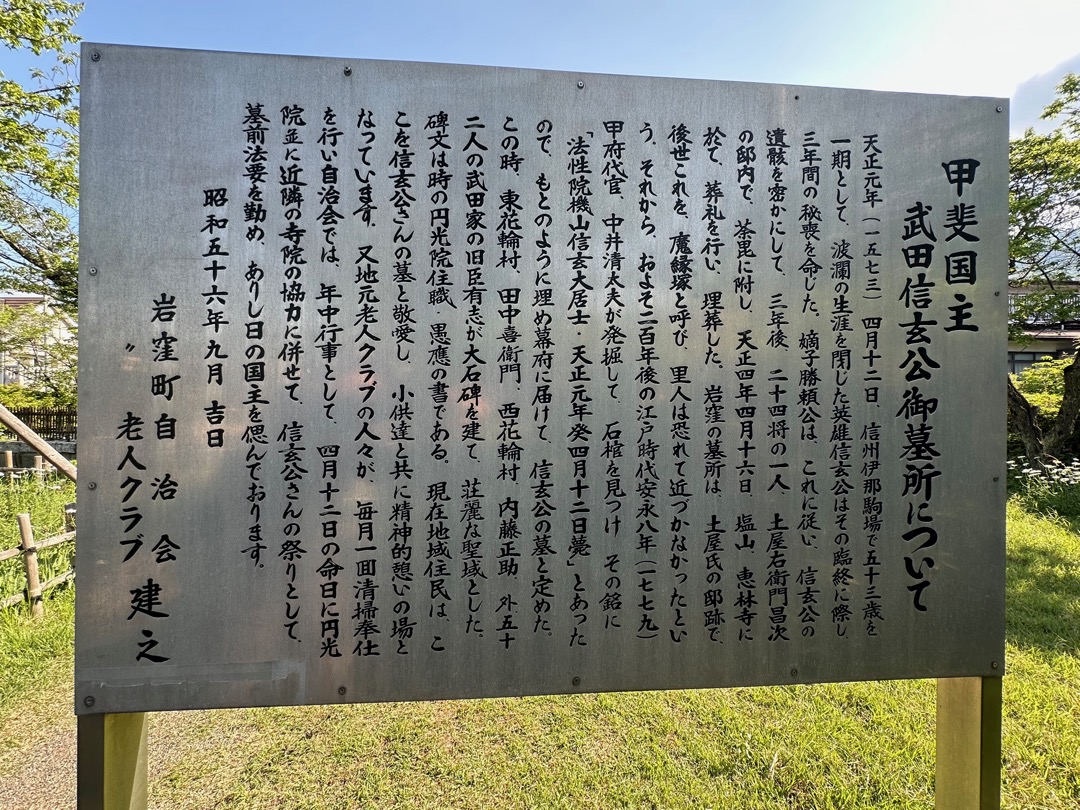 甲斐国主
武田信玄公御墓所について
天正元年（一五七三）四月十二日、信州伊那駒場で五十三歳を
一期として、波瀾の生涯を閉じた英雄信玄公はその臨終に際し
三年間の秘喪を命じた。嫡子勝頼公は、これに従い、信玄公の
遺骸を密かにして、三年後、二十四将の一人、土屋右衛門昌次
の邸内で、荼毘に附し、天正四年四月十六日、塩山、恵林寺に
於て、葬礼を行い、埋葬した。岩窪の墓所は、土屋氏の邸跡で、
後世これを、魔縁塚と呼び、里人は恐れて近づかなかったとい
う、それから、およそ二百年後の江戸時代安永八年（一七七九）
甲府代官、中井清太夫が発掘して、石棺を見つけ　その銘に
「法性院機山信玄大居士　天正元年癸四月十二日薨」とあった
ので、もとのように埋め幕府に届けて、信玄公の墓と定めた。
この時、東花輪村、田中喜衛門、西花輪村、内藤正助　外五十
二人の武田家の旧臣有志が大石碑を建て、荘麗な聖域とした。
碑文は時の円光院住職、愚應の書である。現在地域住民は、こ
こを信玄公さんの墓と敬愛し、小供達と共に精神的憩いの場と
なっています。又地元老人クラブの人々が、毎月一回清掃奉仕
を行い自治会では、年中行事として、四月十二日の命日に円光
院並に近隣の寺院の協力に併せて、信玄公さんの祭りとして、
墓前法要を勤め、ありし日の国主を偲んでおります。
昭和五十六年九月　吉日
岩窪町自治会
〃　老人クラブ　建之